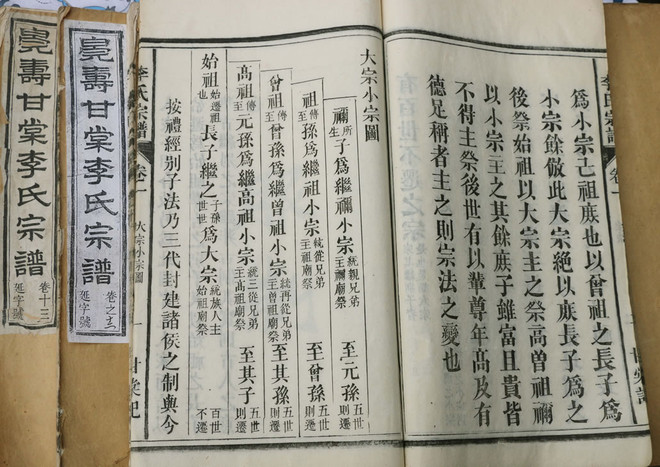 李氏宗譜 卷一
爲小宗己祖庶也以曾祖之長子爲
小宗餘倣此大宗絶以庶長子爲之
後祭始祖以大宗主之祭高曾祖禰
以小宗主之其餘庶子雖富且貴皆
不得主祭後世有以輩尊年高及有
德足稱者主之則宗法之變也
大宗小宗圖
禰所生子爲繼禰小宗統親兄弟主禰廟祭至元孫五世則遷
祖傳至孫爲繼祖小宗統從兄弟主祖廟祭至曾孫五世則遷
曾祖傳至曾孫爲繼曾祖小宗統再從兄弟主曾祖廟祭至其孫五世則遷
高祖傳至元孫爲繼高祖小宗統三從兄弟主高祖廟祭至其子五世則遷
始祖始遷祖也長子繼之子孫世世爲大宗統族人主始祖廟祭百世不遷
按禮經別子法乃三代封建諸侯之制與今
李氏宗譜 卷一 大宗小宗圖 一 甘棠
壽甘棠李氏宗譜
字號
壽甘棠李氏宗譜
卷十三
字號